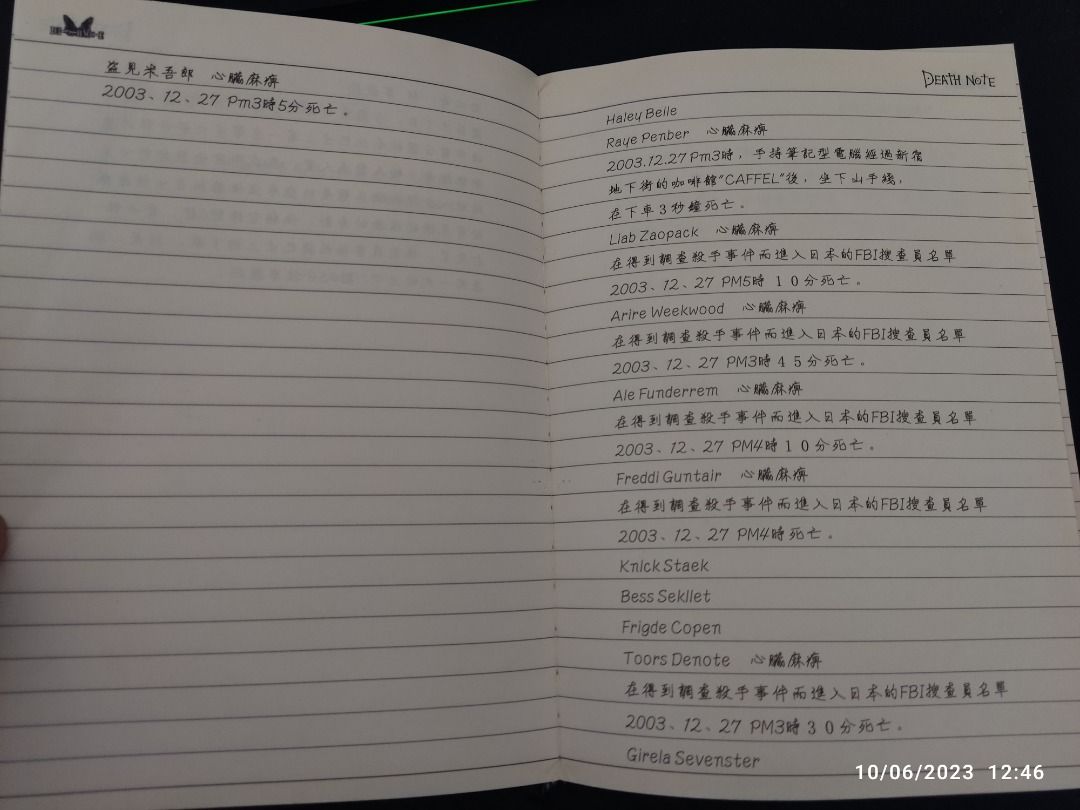 盗見米吾郎 心臟麻痹
2003、12、27 Pm3時5分死亡。
DEATH NOTE
Haley Belle
Raye Penber 心臟麻痹
2003.12.27 Pm3時，手持筆記型電腦經過新宿
地下街的咖啡館"CAFFEL"後，坐下山手綫，
在下車3秒鐘死亡。
Liab Zaopack 心臟麻痹
在得到調查殺手事件而進入日本的FBI搜查員名單
2003、12、27 PM5時10分死亡。
Arire Weekwood 心臟麻痹
在得到調查殺手事件而進入日本的FBI搜查員名單
2003、12、27 PM3時45分死亡。
Ale Funderrem 心臟麻痹
在得到調查殺手事件而進入日本的FBI搜查員名單
2003、12、27 PM4時10分死亡。
Freddi Guntair 心臟麻痹
在得到調查殺手事件而進入日本的FBI搜查員名單
2003、12、27 PM4時死亡。
Knick Staek
Bess Sekllet
Frigde Copen
Toors Denote 心臟麻痹
在得到調查殺手事件而進入日本的FBI搜查員名單
2003、12、27 PM3時30分死亡。
Girela Sevenster
10/06/2023 12:46